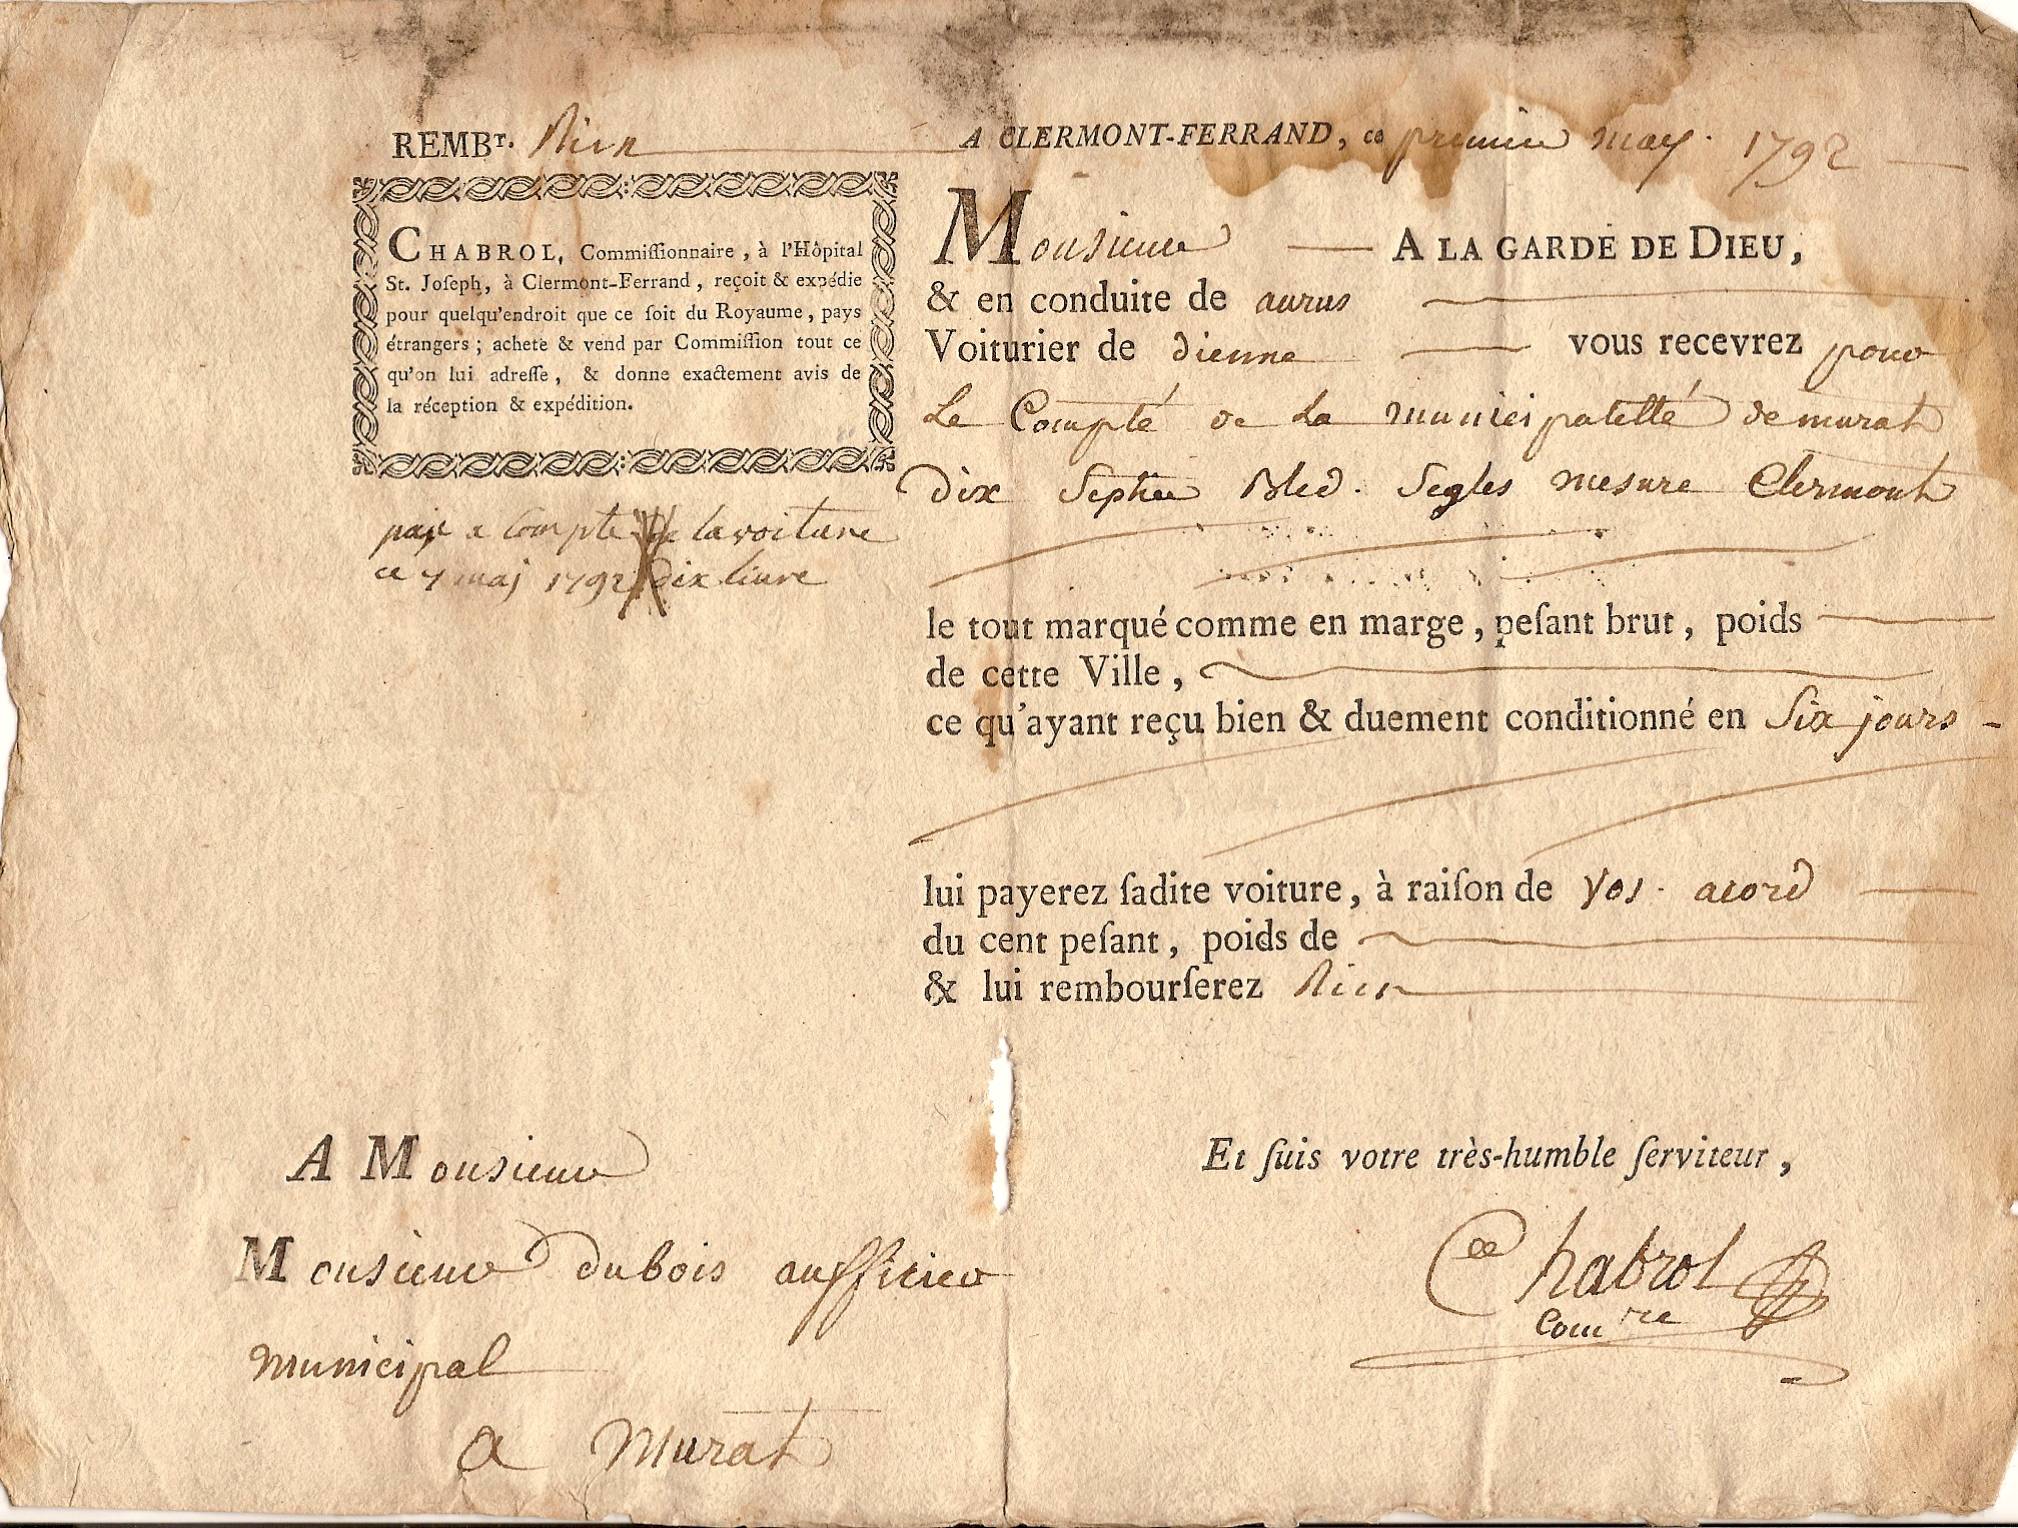 REMBT. Rien
A CLERMONT-FERRAND, ce premier may 1792
CHABROL, Commiſſionnaire, à l'Hôpital
St. Joſeph, à Clermont-Ferrand, reçoit & expédie
pour quelqu'endroit que ce ſoit du Royaume, pays
étrangers; achete & vend par Commiſſion tout ce
qu'on lui adreſſe, & donne exactement avis de
la réception & expédition.
paye a compte de la voiture
ce 7 maj 1792 dix livre
Monsieur A LA GARDE DE DIEU,
& en conduite de aurus
Voiturier de dienne vous recevrez pour
Le Compté de La municipaletté de murat
dix Septier Bled. Segles mesure Clermont
le tout marqué comme en marge, peſant brut, poids
de cette Ville,
ce qu'ayant reçu bien & duement conditionné en Six jours
lui payerez ſadite voiture, à raiſon de vos acord
du cent peſant, poids de
& lui rembourſerez Rien
Et ſuis votre très-humble ſerviteur,
Chabrol
Comre
A Monsieur
Monsieur dubois aufficier
municipal
a Murat